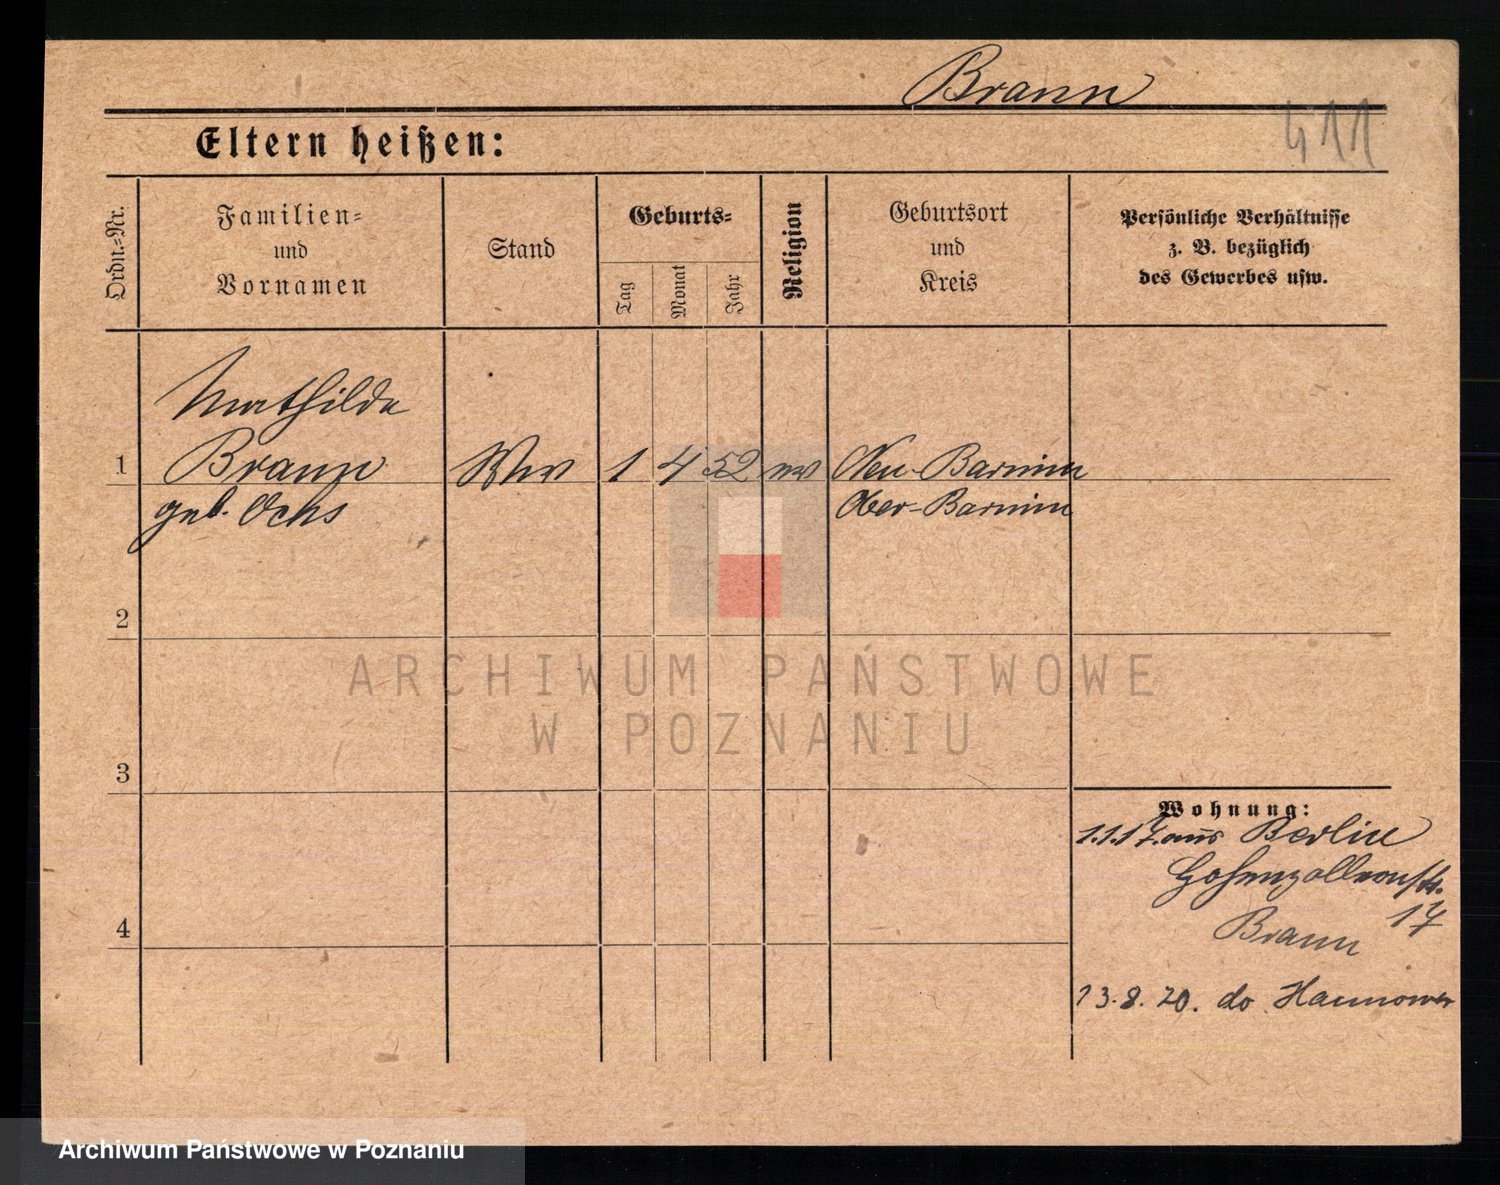 Brann
411
Eltern heißen:
Ordn.-Nr.
Familien-
und
Vornamen
Stand
Geburts-
Tag
Monat
Jahr
Religion
Geburtsort
und
Kreis
Persönliche Verhältnisse
z. B. bezüglich
des Gewerbes usw.
Mathilde
1 Brann Ww 1 4 52 Neu-Barnim
geb. Ochs Ober-Barnim
2
3
4
Wohnung:
1.1.17. aus Berlin
Hohenzollernstr.
17
Brann
13.8.20. do Hannower
ARCHIWUM PAŃSTWOWE
W POZNANIU
Archiwum Państwowe w Poznaniu